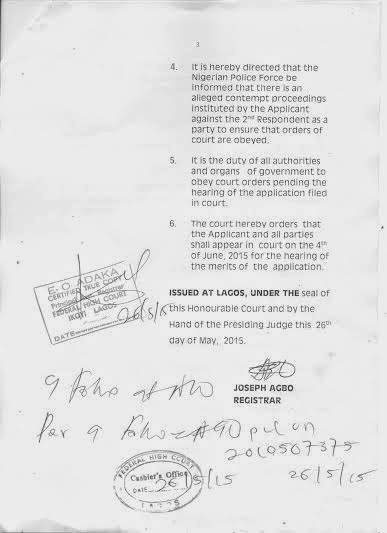 3
4. It is hereby directed that the
Nigerian Police Force be
informed that there is an
alleged contempt proceedings
instituted by the Applicant
against the 2nd Respondent as a
party to ensure that orders of
court are obeyed.
5. It is the duty of all authorities
and organs of government to
obey court orders pending the
hearing of the application filed
in court.
6. The court hereby orders that
the Applicant and all parties
shall appear in court on the 4th
of June, 2015 for the hearing of
the merits of the application.
E. O. ADAKA
CERTIFIED TRUE COPY
Principal Registrar
FEDERAL HIGH COURT
IKOYI LAGOS
DATE
26/5/15
ISSUED AT LAGOS, UNDER THE seal of
this Honourable Court and by the
Hand of the Presiding Judge this 26th
day of May, 2015.
JOSEPH AGBO
REGISTRAR
9
9
2010507375
26/5/15
FEDERAL HIGH COURT
Cashier's Office
DATE 26/5/15
LAGOS